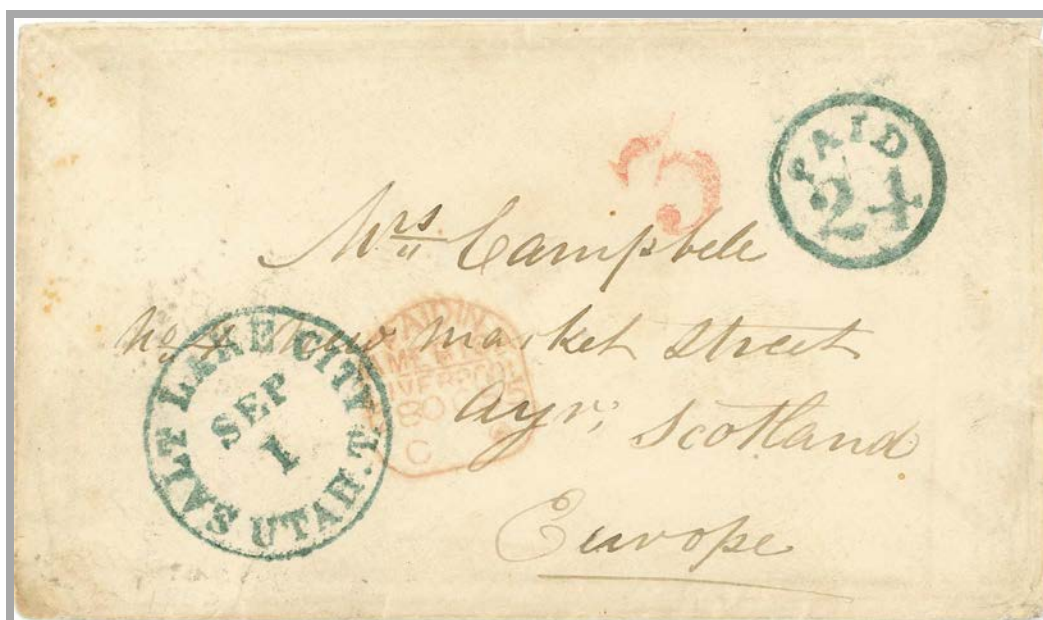 PAID
24
Mrs. Campbell
No 4 New Market Street
Ayr, Scotland
Europe
SALT LAKE CITY. UTAH.T.
SEP
1
PAID IN
LIVERPOOL
80
C